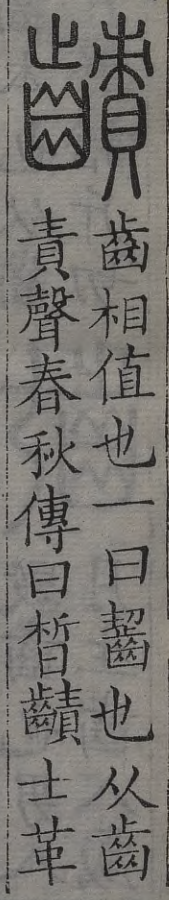 齰
齒相值也一曰齧也从齒
責聲春秋傳曰晳齰士革